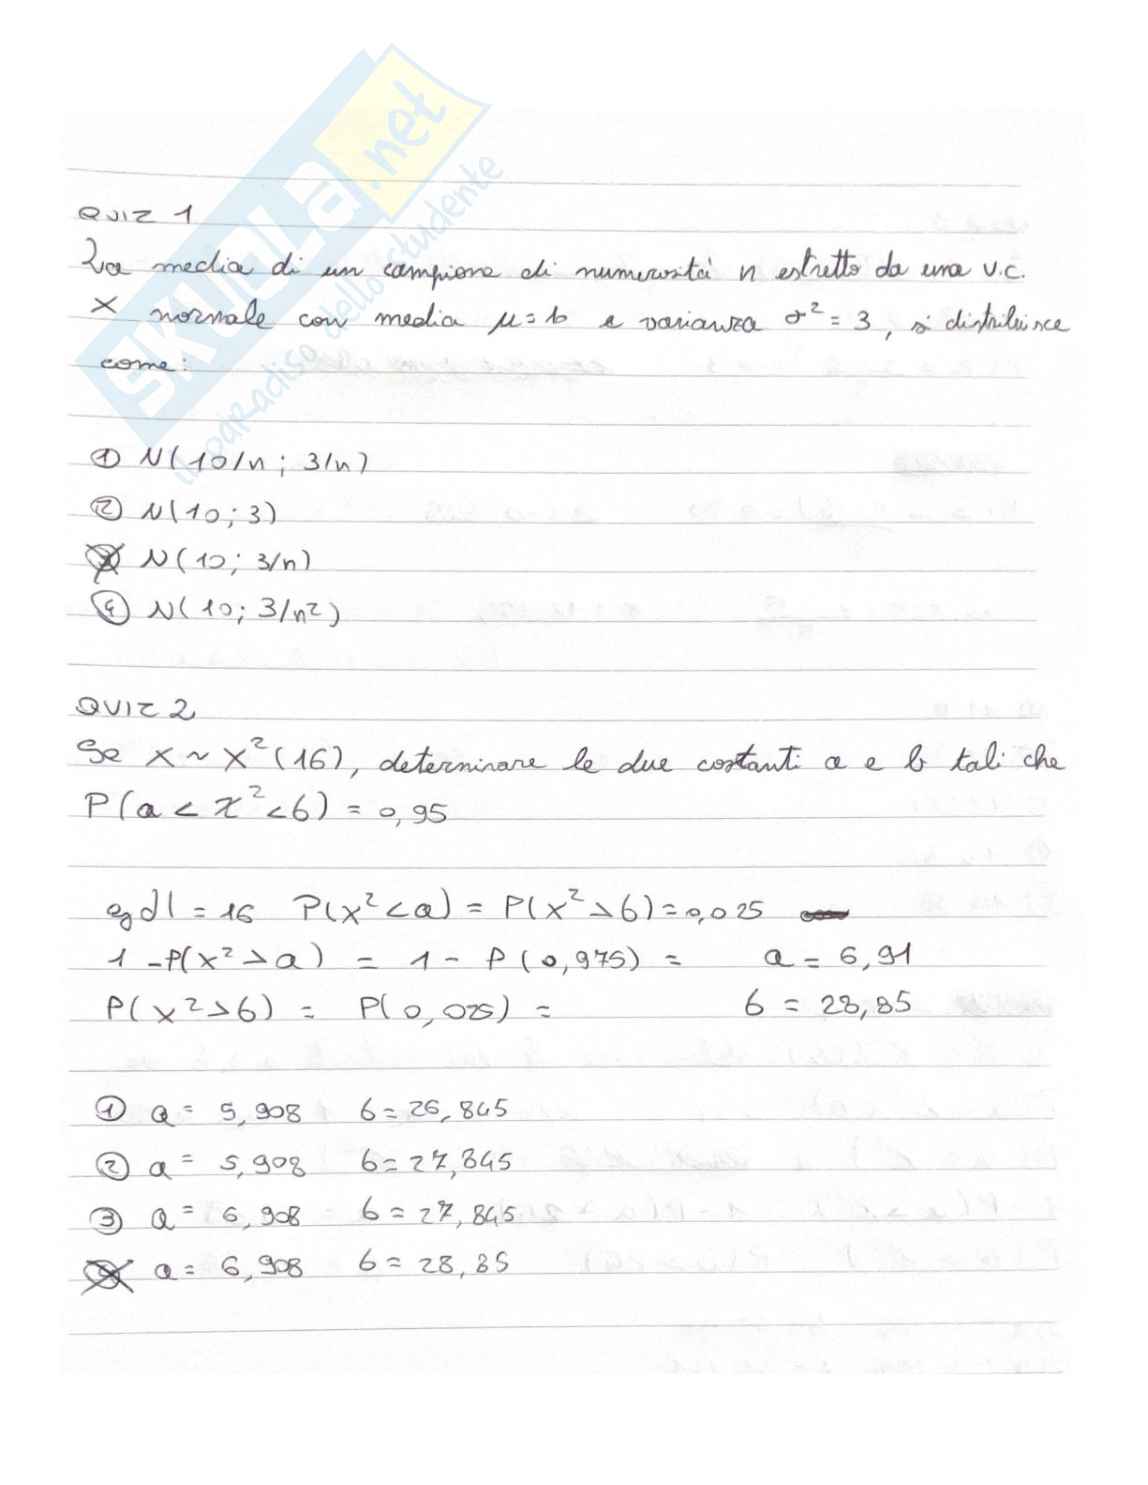 SKUOLA.net
il paradiso dello studente
QUIZ 1
La media di un campione di numerosità n estretto da una v.c.
X normale con media μ=10 e varianza σ² = 3, si distribuisce
come:
① N(10/n; 3/n)
② N(10; 3)
③ N(10; 3/n)
④ N(10; 3/n²)
QUIZ 2
Se X ~ X²(16), determinare le due costanti a e b tali che
P(a < X² < b) = 0,95
gdl = 16 P(X² < a) = P(X² > b) = 0,025
1 - P(X² > a) = 1 - P(0,975) = a = 6,91
P(X² > b) = P(0,025) = b = 28,85
① a = 5,908 b = 26,845
② a = 5,908 b = 27,845
③ a = 6,908 b = 27,845
④ a = 6,908 b = 28,85